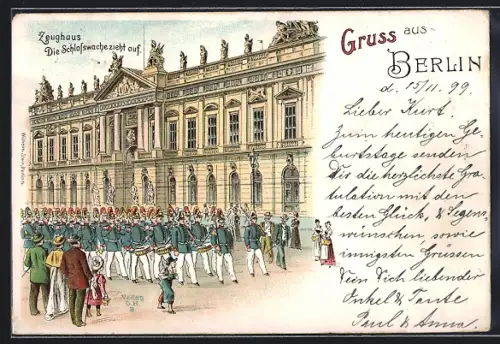 Zeughaus
Die Schlosswache zieht auf.
Gruss aus
BERLIN
d. 15/11. 99.
Lieber Kurt.
Zum heutigen Ge-
burtstage senden
Dir die herzlichste Gra-
tulation mit den
besten Glück, & Segens-
wünschen sowie
innigsten Grüssen
Dein Dich liebender
Onkel & Tante
Paul & Anna.
Verlag